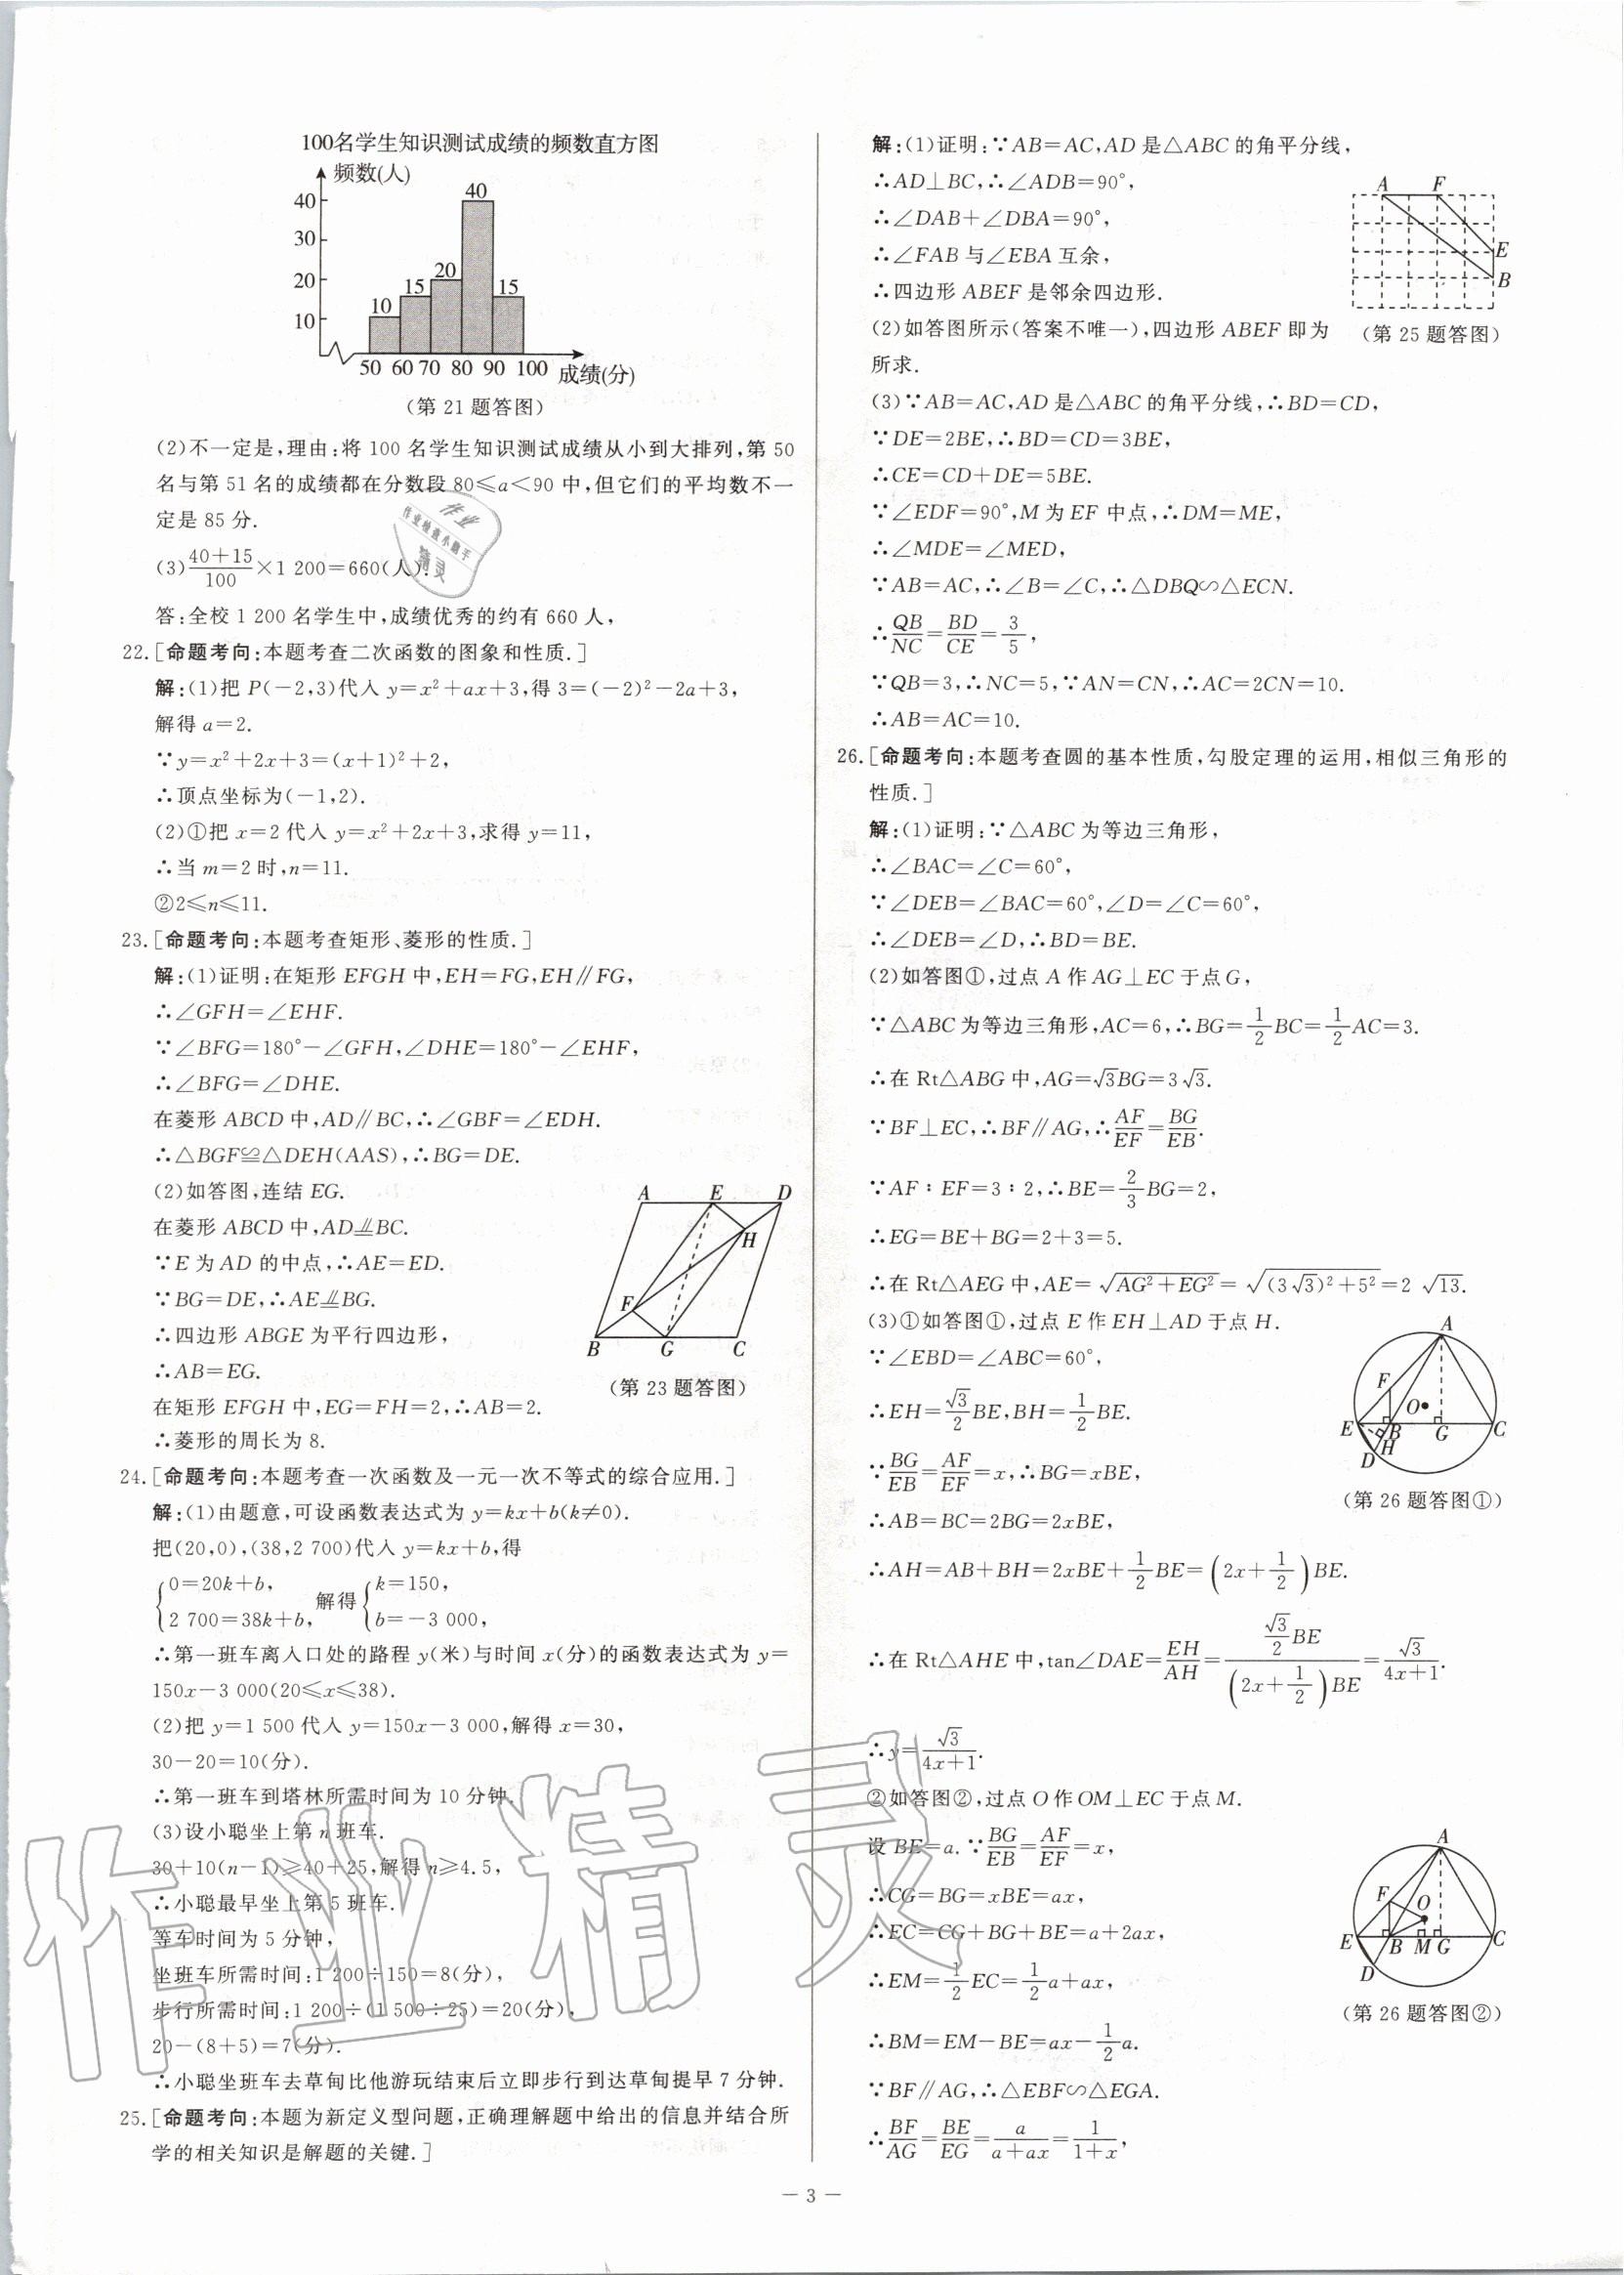 100名学生知识测试成绩的频数直方图
频数(人)
40
30
20
10
10
15
20
40
15
50 60 70 80 90 100 成绩(分)
(第 21 题答图)
(2)不一定是,理由:将 100 名学生知识测试成绩从小到大排列,第 50
名与第 51 名的成绩都在分数段 80≤a<90 中,但它们的平均数不一
定是 85 分.
(3)\frac{40+15}{100}×1 200=660(人).
答:全校 1 200 名学生中,成绩优秀的约有 660 人,
22.[命题考向:本题考查二次函数的图象和性质.]
解:(1)把 P(-2,3)代入 y=x²+ax+3,得 3=(-2)²-2a+3,
解得 a=2.
∵y=x²+2x+3=(x+1)²+2,
∴顶点坐标为(-1,2).
(2)①把 x=2 代入 y=x²+2x+3,求得 y=11,
∴当 m=2 时,n=11.
②2≤n≤11.
23.[命题考向:本题考查矩形、菱形的性质.]
解:(1)证明:在矩形 EFGH 中,EH=FG,EH∥FG,
∴∠GFH=∠EHF.
∵∠BFG=180°-∠GFH,∠DHE=180°-∠EHF,
∴∠BFG=∠DHE.
在菱形 ABCD 中,AD∥BC,∴∠GBF=∠EDH.
∴△BGF≌△DEH(AAS),∴BG=DE.
(2)如答图,连结 EG.
在菱形 ABCD 中,AD⫽BC.
∵E 为 AD 的中点,∴AE=ED.
∵BG=DE,∴AE⫽BG.
∴四边形 ABGE 为平行四边形,
∴AB=EG.
在矩形 EFGH 中,EG=FH=2,∴AB=2.
∴菱形的周长为 8.
A E D
H
F
B G C
(第 23 题答图)
24.[命题考向:本题考查一次函数及一元一次不等式的综合应用.]
解:(1)由题意,可设函数表达式为 y=kx+b(k≠0).
把(20,0),(38,2 700)代入 y=kx+b,得
{0=20k+b, 2 700=38k+b, 解得 {k=150, b=-3 000,
∴第一班车离入口处的路程 y(米)与时间 x(分)的函数表达式为 y=
150x-3 000(20≤x≤38).
(2)把 y=1 500 代入 y=150x-3 000,解得 x=30,
30-20=10(分).
∴第一班车到塔林所需时间为 10 分钟.
(3)设小聪坐上第 n 班车.
30+10(n-1)≥40+25,解得 n≥4.5,
∴小聪最早坐上第 5 班车.
等车时间为 5 分钟,
坐班车所需时间:1 200÷150=8(分),
步行所需时间:1 200÷(1 500÷25)=20(分),
20-(8+5)=7(分).
∴小聪坐班车去草甸比他游玩结束后立即步行到达草甸提早 7 分钟.
25.[命题考向:本题为新定义型问题,正确理解题中给出的信息并结合所
学的相关知识是解题的关键.]
解:(1)证明:∵AB=AC,AD 是△ABC 的角平分线,
∴AD⊥BC,∴∠ADB=90°,
∴∠DAB+∠DBA=90°,
∴∠FAB 与∠EBA 互余,
∴四边形 ABEF 是邻余四边形.
(2)如答图所示(答案不唯一),四边形 ABEF 即为
所求.
A F
E
B
(第 25 题答图)
(3)∵AB=AC,AD 是△ABC 的角平分线,∴BD=CD,
∵DE=2BE,∴BD=CD=3BE,
∴CE=CD+DE=5BE.
∵∠EDF=90°,M 为 EF 中点,∴DM=ME,
∴∠MDE=∠MED,
∵AB=AC,∴∠B=∠C,∴△DBQ∽△ECN.
∴\frac{QB}{NC}=\frac{BD}{CE}=\frac{3}{5},
∵QB=3,∴NC=5,∵AN=CN,∴AC=2CN=10.
∴AB=AC=10.
26.[命题考向:本题考查圆的基本性质,勾股定理的运用,相似三角形的
性质.]
解:(1)证明:∵△ABC 为等边三角形,
∴∠BAC=∠C=60°,
∵∠DEB=∠BAC=60°,∠D=∠C=60°,
∴∠DEB=∠D,∴BD=BE.
(2)如答图①,过点 A 作 AG⊥EC 于点 G,
∵△ABC 为等边三角形,AC=6,∴BG=\frac{1}{2}BC=\frac{1}{2}AC=3.
∴在 Rt△ABG 中,AG=√3BG=3√3.
∵BF⊥EC,∴BF∥AG,∴\frac{AF}{EF}=\frac{BG}{EB}.
∵AF∶EF=3∶2,∴BE=\frac{2}{3}BG=2,
∴EG=BE+BG=2+3=5.
∴在 Rt△AEG 中,AE=\sqrt{AG²+EG²}=\sqrt{(3√3)²+5²}=2√13.
(3)①如答图①,过点 E 作 EH⊥AD 于点 H.
∵∠EBD=∠ABC=60°,
∴EH=\frac{√3}{2}BE,BH=\frac{1}{2}BE.
∵\frac{BG}{EB}=\frac{AF}{EF}=x,∴BG=xBE,
∴AB=BC=2BG=2xBE,
∴AH=AB+BH=2xBE+\frac{1}{2}BE=(2x+\frac{1}{2})BE.
∴在 Rt△AHE 中,tan∠DAE=\frac{EH}{AH}=\frac{\frac{√3}{2}BE}{(2x+\frac{1}{2})BE}=\frac{√3}{4x+1}.
∴y=\frac{√3}{4x+1}.
A
F
O
E B G C
H
D
(第 26 题答图①)
②如答图②,过点 O 作 OM⊥EC 于点 M.
设 BE=a.∵\frac{BG}{EB}=\frac{AF}{EF}=x,
∴CG=BG=xBE=ax,
∴EC=CG+BG+BE=a+2ax,
∴EM=\frac{1}{2}EC=\frac{1}{2}a+ax,
∴BM=EM-BE=ax-\frac{1}{2}a.
∵BF∥AG,∴△EBF∽△EGA.
∴\frac{BF}{AG}=\frac{BE}{EG}=\frac{a}{a+ax}=\frac{1}{1+x},
A
F
O
E B M G C
D
(第 26 题答图②)
— 3 —
作业
作业检查小助手
精灵
作业精灵